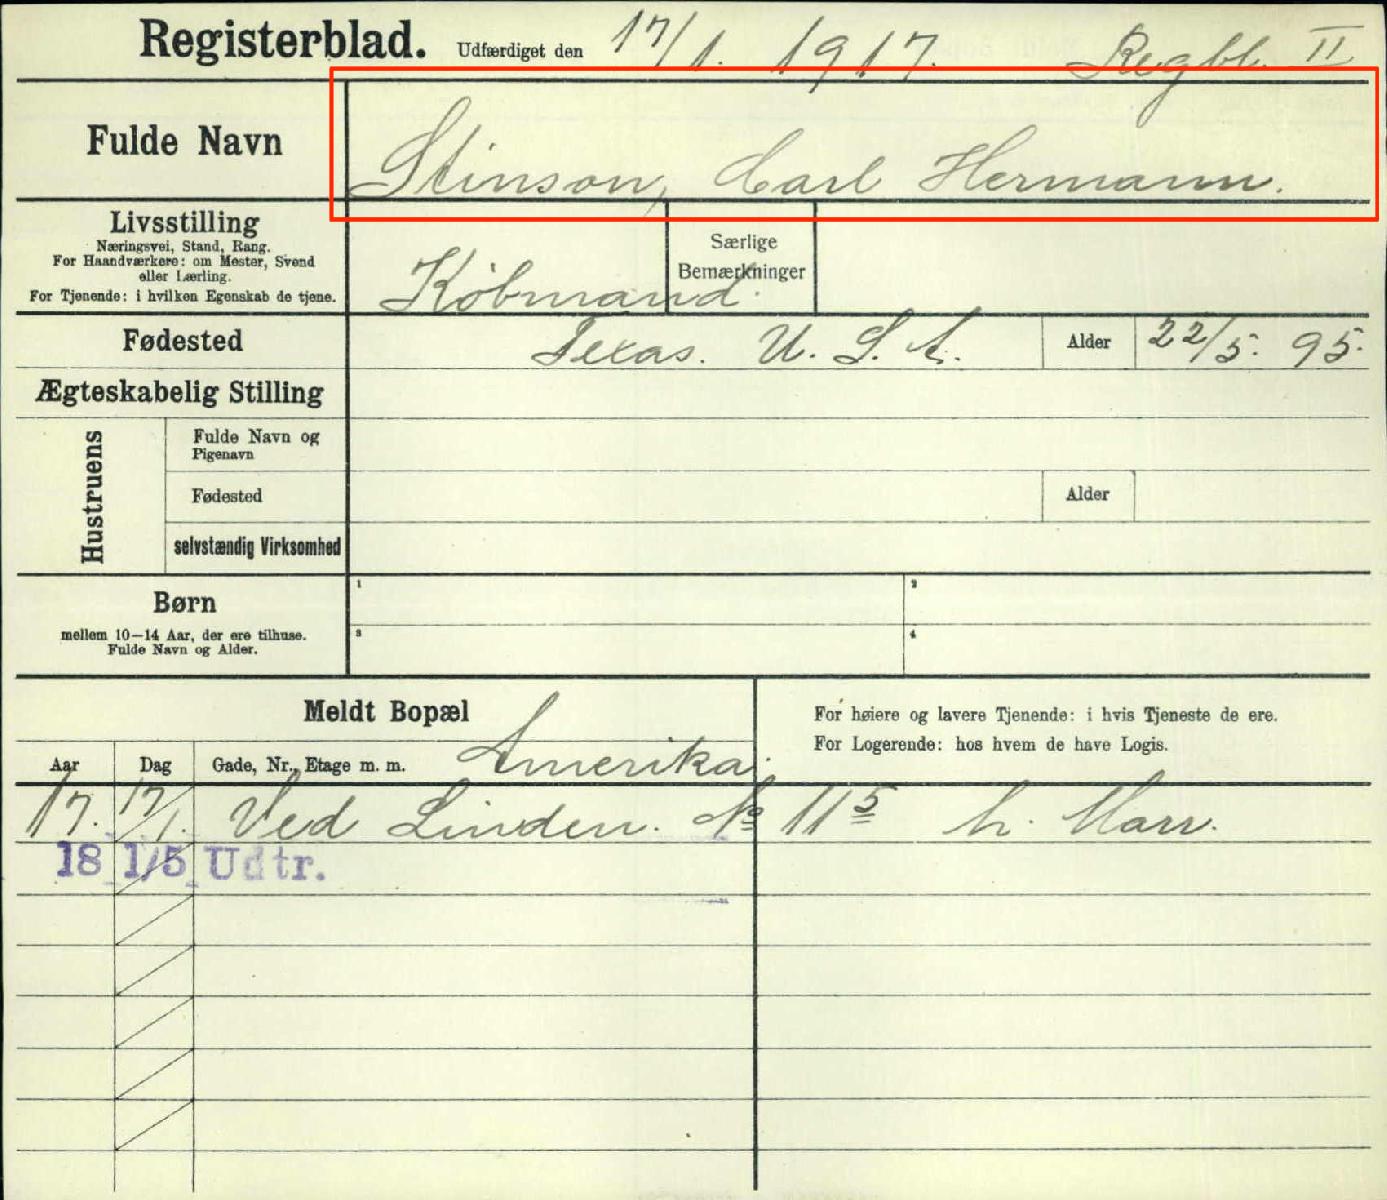 Registerblad. Udfærdiget den 17/1. 1917. Regbl. II
Fulde Navn Stinson, Carl Hermann.
Livsstilling
Næringsvei, Stand, Rang.
For Haandværkere: om Mester, Svend
eller Lærling.
For Tjenende: i hvilken Egenskab de tjene.
Købmand.
Særlige
Bemærkninger
Fødested Texas. U. S. A. Alder 22/5. 95.
Ægteskabelig Stilling
Hustruens
Fulde Navn og
Pigenavn
Fødested Alder
selvstændig Virksomhed
Børn
mellem 10–14 Aar, der ere tilhuse.
Fulde Navn og Alder.
1 2
3 4
Meldt Bopæl
For høiere og lavere Tjenende: i hvis Tjeneste de ere.
For Logerende: hos hvem de have Logis.
Aar Dag Gade, Nr., Etage m. m. Amerika.
17. 17/1. Ved Linden. No 11 5 h. Marr.
18 1/5 Udtr.